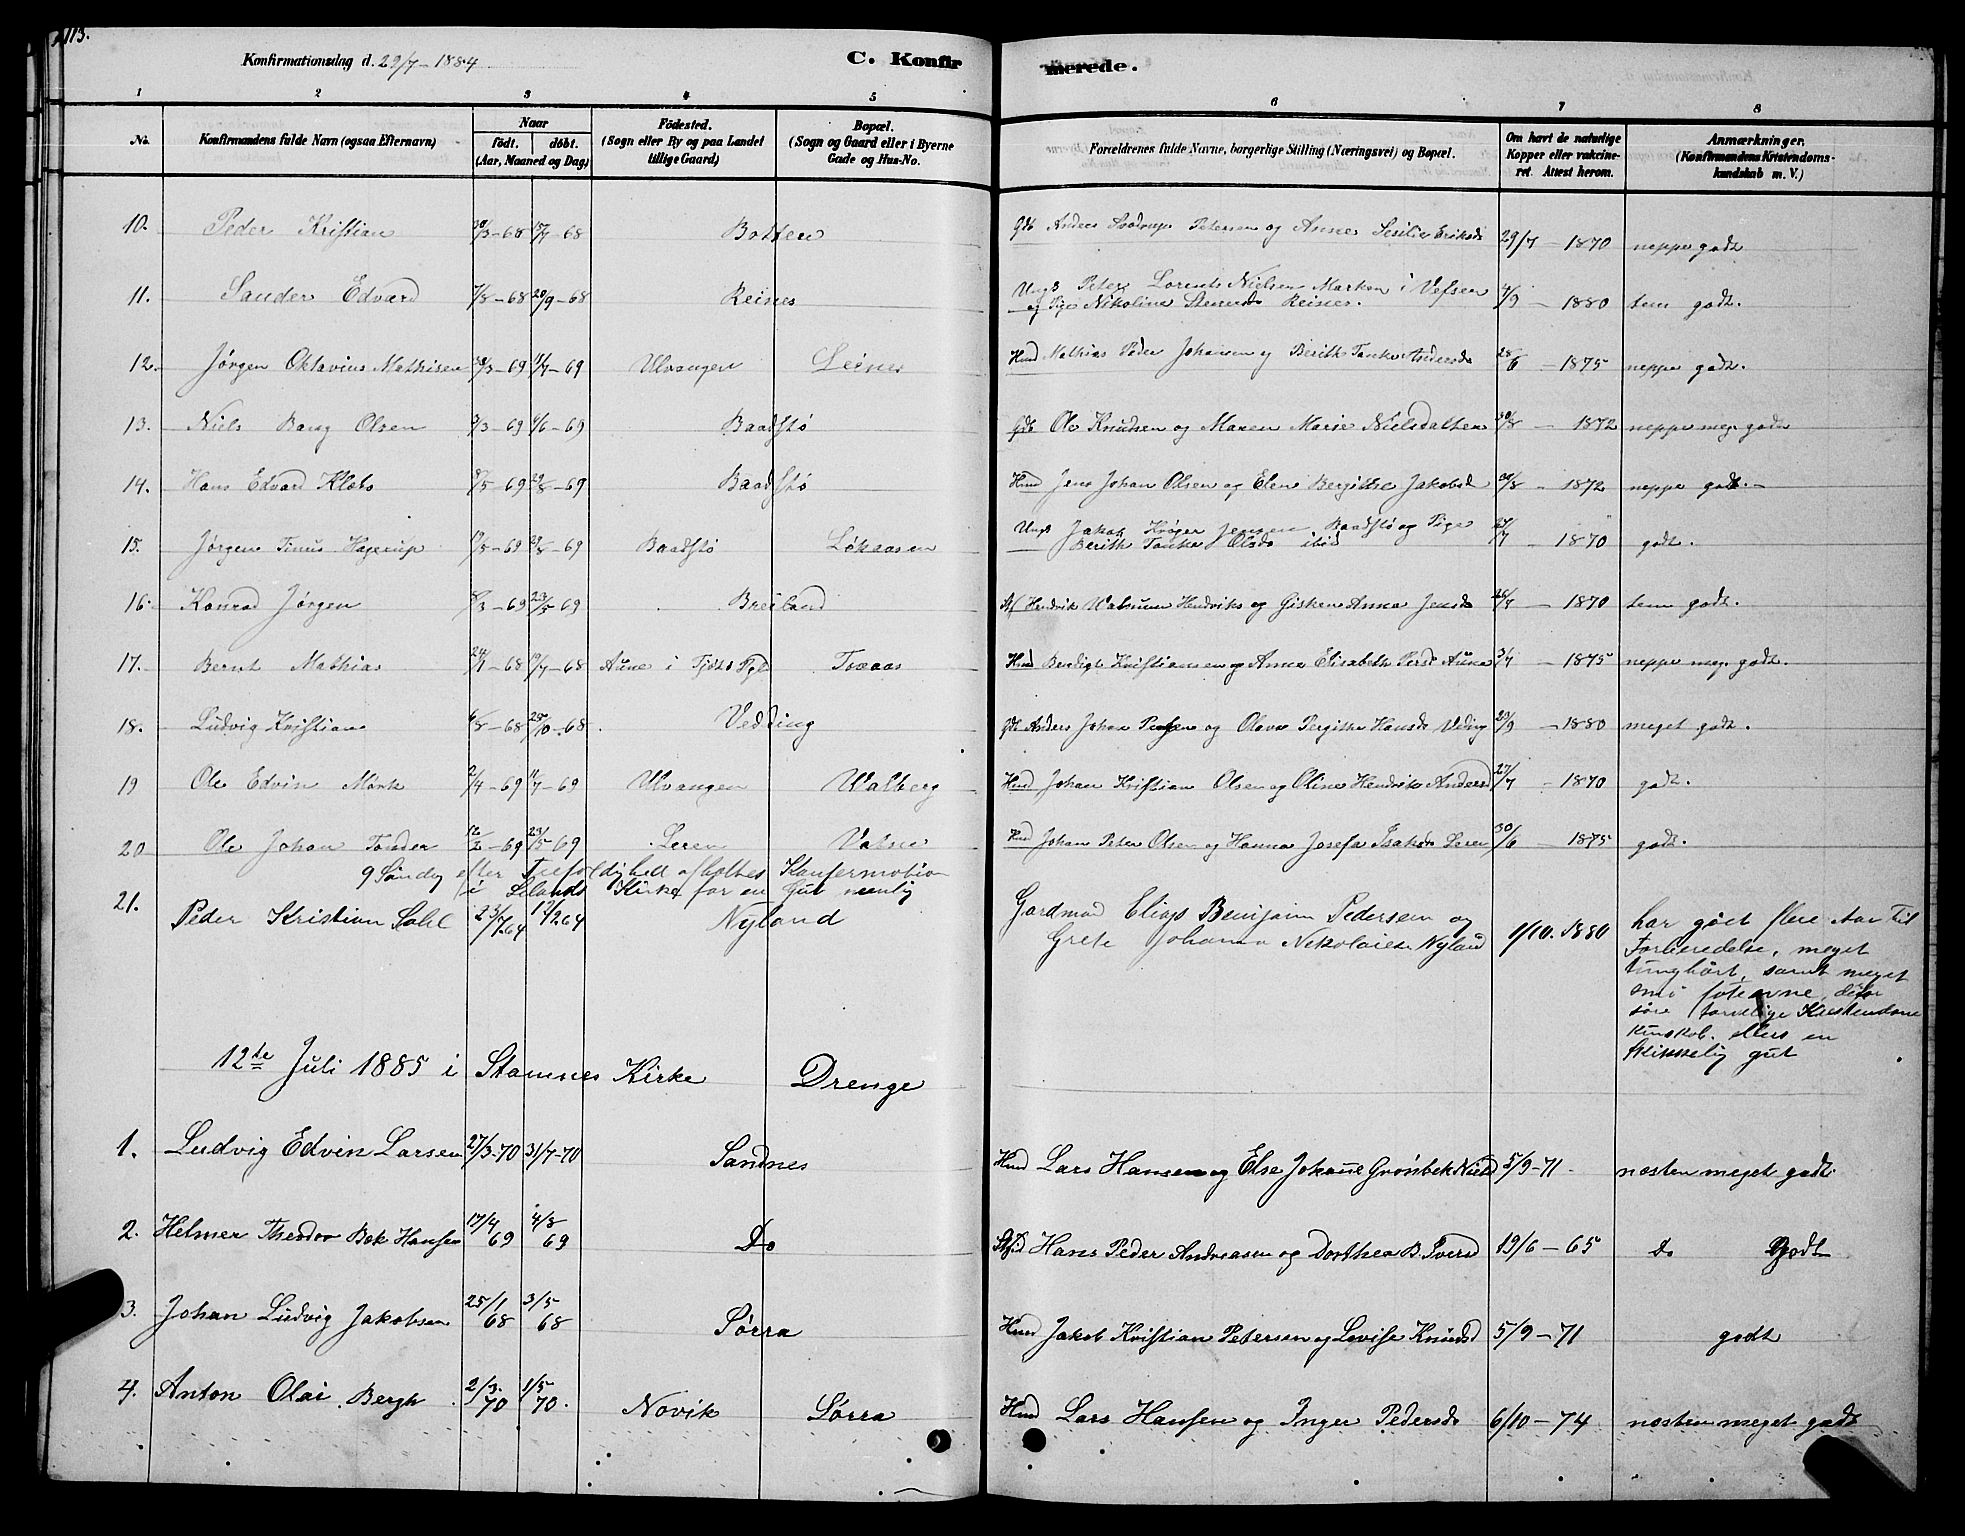 113.
Konfirmationsdag d. 29/7-1884
C. Konfirmerede.
1 2 3 4 5 6 7 8
No. Konfirmandens fulde Navn (ogsaa Efternavn) Naar födt. döbt. (Aar, Maaned og Dag) Födested. (Sogn eller By og paa Landet tillige Gaard) Bopæl. (Sogn og Gaard eller i Byerne Gade og Hus-No. Forældrenes fulde Navne, borgerlige Stilling (Næringsvei) og Bopæl. Om havt de naturlige Kopper eller vakcineret. Attest herom. Anmærkninger. (Konfirmandens Kristendomskundskab m. V.)
10. Peder Kristian 30/3-68 Botten Gdb Anders Petersen og Anne Sesilie Eriksd 29/7 - 1870 neppe godt
11. Sander Edvard 7/8-68 20/9-68 Reines Ungk Peter Lorents Nielsen Marken i Vefsen
og Pige Nikoline Reines. 4/9 - 1880 tem godt.
12. Jørgen Oktavius Mathisen 30/3-69 11/7-69 Ulvangen Leines Hmd Mathias Peder Johansen og Berith Tanke Andersd 28/6 - 1875 neppe godt.
13. Niels Bang Olsen 3/3-69 6/6-69 Baadstø Gdb Ole Knudsen og Maren Marie Nielsdatter 30/8 - 1872 neppe meg. godt
14. Hans Edvard Klæbo 8/5-69 29/8-69 Baadstø Hmd Jens Johan Olsen og Elen Bergitte Jakobsd 30/8 - 1872 neppe godt.-
15. Jørgen Tinus Hagerup 19/5-69 29/8-69 Baadstø Løkaasen Ungk Jakob Krøger Jensen Baadstø og Pige
Berith Tanke Olsd ibid 27/7 1870 godt.
16. Konrad Jørgen 8/3-69 23/5-69 Breiland Hendrik Hendriks og Gisken Anna Jensd 26/7 - 1870 tem godt.
17. Bernt Mathias 24/1-68 19/7-68 Aune i Tjøtø Pgl Tvæaas Hmd Bendigt Kristiansen og Anna Elisabeth Persd Aune 3/7 - 1875 neppe meg. godt.
18. Ludvig Kristian 6/8-68 25/10-68 Vedding Gdb Anders Johan og Olava Bergitte Hansd Veding 29/9 - 1880 meget godt.
19 Ole Edvin Mørk 2/4-69 11/7-69 Ulvangen Valberg Hmd Johan Kristian Olsen og Oline Hendrikke Andersd 27/7 - 1870 godt.
20 Ole Johan Tønder 12/2-69 23/5-69 Leren Vatne Hmd Johan Peter Olsen og Hanna Josefa Isaksd Leren 30/6 - 1875 godt.
9 Søndag efter Trefoldighed afholttes Konfermation
i Lelands Kirke for en Gut nemlig
21. Peder Kristian Dahl 23/7 64 Nyland Gardmand Elias Benjamin Pedersen og
Grete Johanna Nikolaisd Nyland 1/10. 1880 har gået flere Aar til
Forberedelse, meget
tunghört, samt meget
små
Kristendoms
kunskab. ellers en
skikkelig gut
12te Juli 1885 i Stamnes Kirke Drenge
1. Ludvig Edvin Larsen 27/3-70 31/7-70 Sandnes Hmd Lars Hansen og Else Johanne Grønbek Nielsd 5/9-71 næsten meget godt.
2. Helmer Theodor Bek Hansen 17/4 69 4/8 69 Do Hans Peder Andreasen og Dorthea B. Iversd 19/6-65 Do Godt
3. Johan Ludvig Jakobsen 25/1 68 3/5 68 Sørra Hmd Jakob Kristian Petersen og Lovise Knudsd 5/9-71 godt
4. Anton Olai Bergh. 2/3. 70 1/5 70. Novik Sørra Hmd Lars Hansen og Inger Pedersd 6/10-74 næsten meget godt